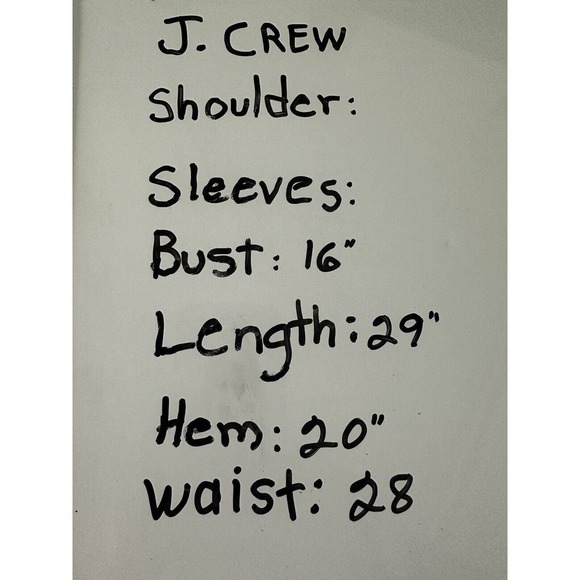 J. CREW
Shoulder:
Sleeves:
Bust: 16"
Length: 29"
Hem: 20"
waist: 28